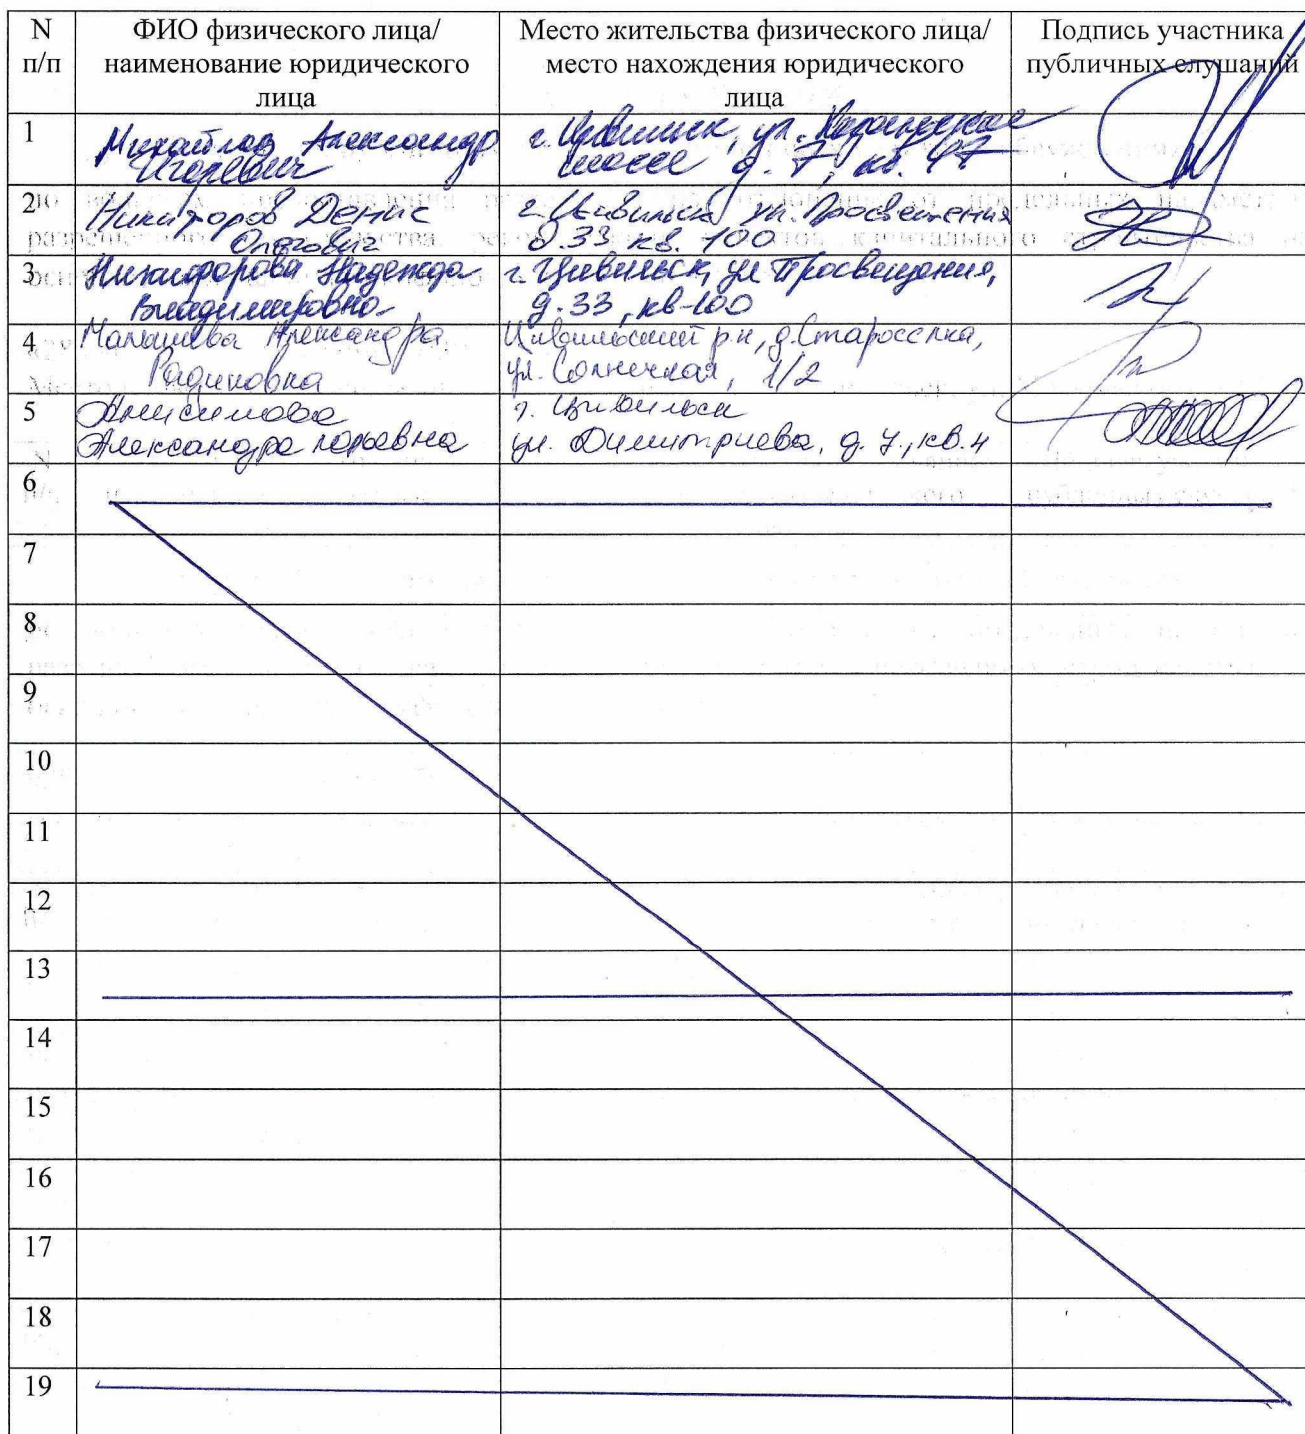 N п/п
ФИО физического лица/ наименование юридического лица
Место жительства физического лица/ место нахождения юридического лица
Подпись участника публичных слушаний
1
Михайлов Александр
Игоревич
г. Цивильск, ул.
шоссе д. 7, кв. 47
2
Никифоров Денис
Олегович
г. Цивильск ул. Просвещения
д. 33 кв. 100
3
Никифорова Надежда
Владимировна
г. Цивильск, ул Просвещения,
д. 33, кв-100
4
Малышева Александра
Радиковна
Цивильский р-н, д. Староселка,
ул. Солнечная, 1/2
5
Анисимова
Александра Юрьевна
г. Цивильск
ул. Димитриева, д. 7, кв. 4
6
7
8
9
10
11
12
13
14
15
16
17
18
19